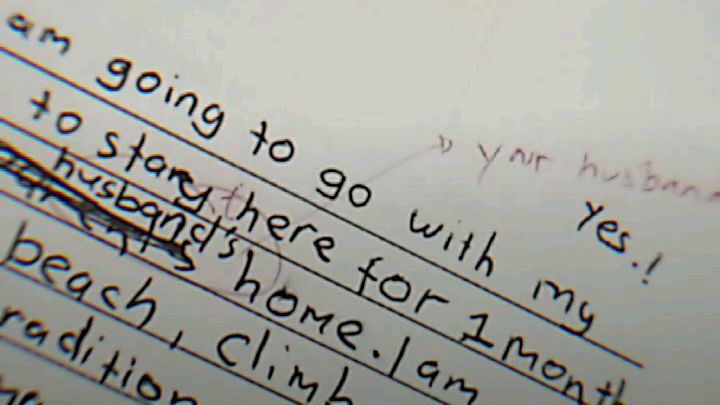 am going to go with my
» your husband
Yes.!
to stary there for 1 month
husband's home. I am
beach, climb
radition